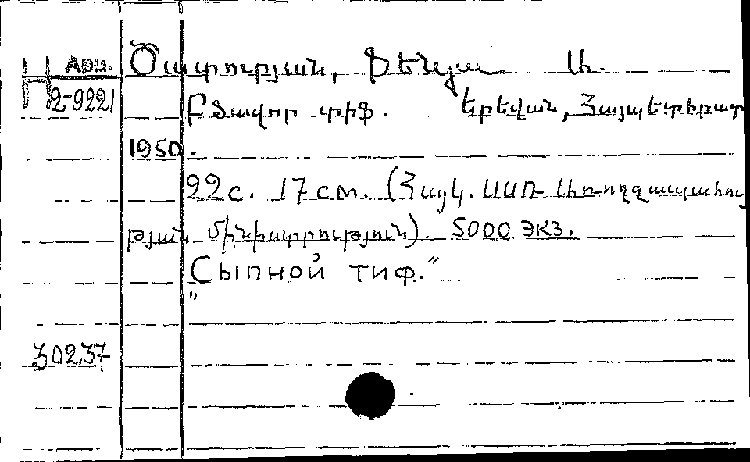 Арм. Ծատուրյան, Ֆենյա Ա.
2-9221 Բծավոր տիֆ. Երեվան, Հայպետհրատ
1950.
22 с. 17 см. (Հայկ. ՍՍՌ Առողջապահու
թյան մինիստրություն). 5000 экз.
"Сыпной тиф."
30237